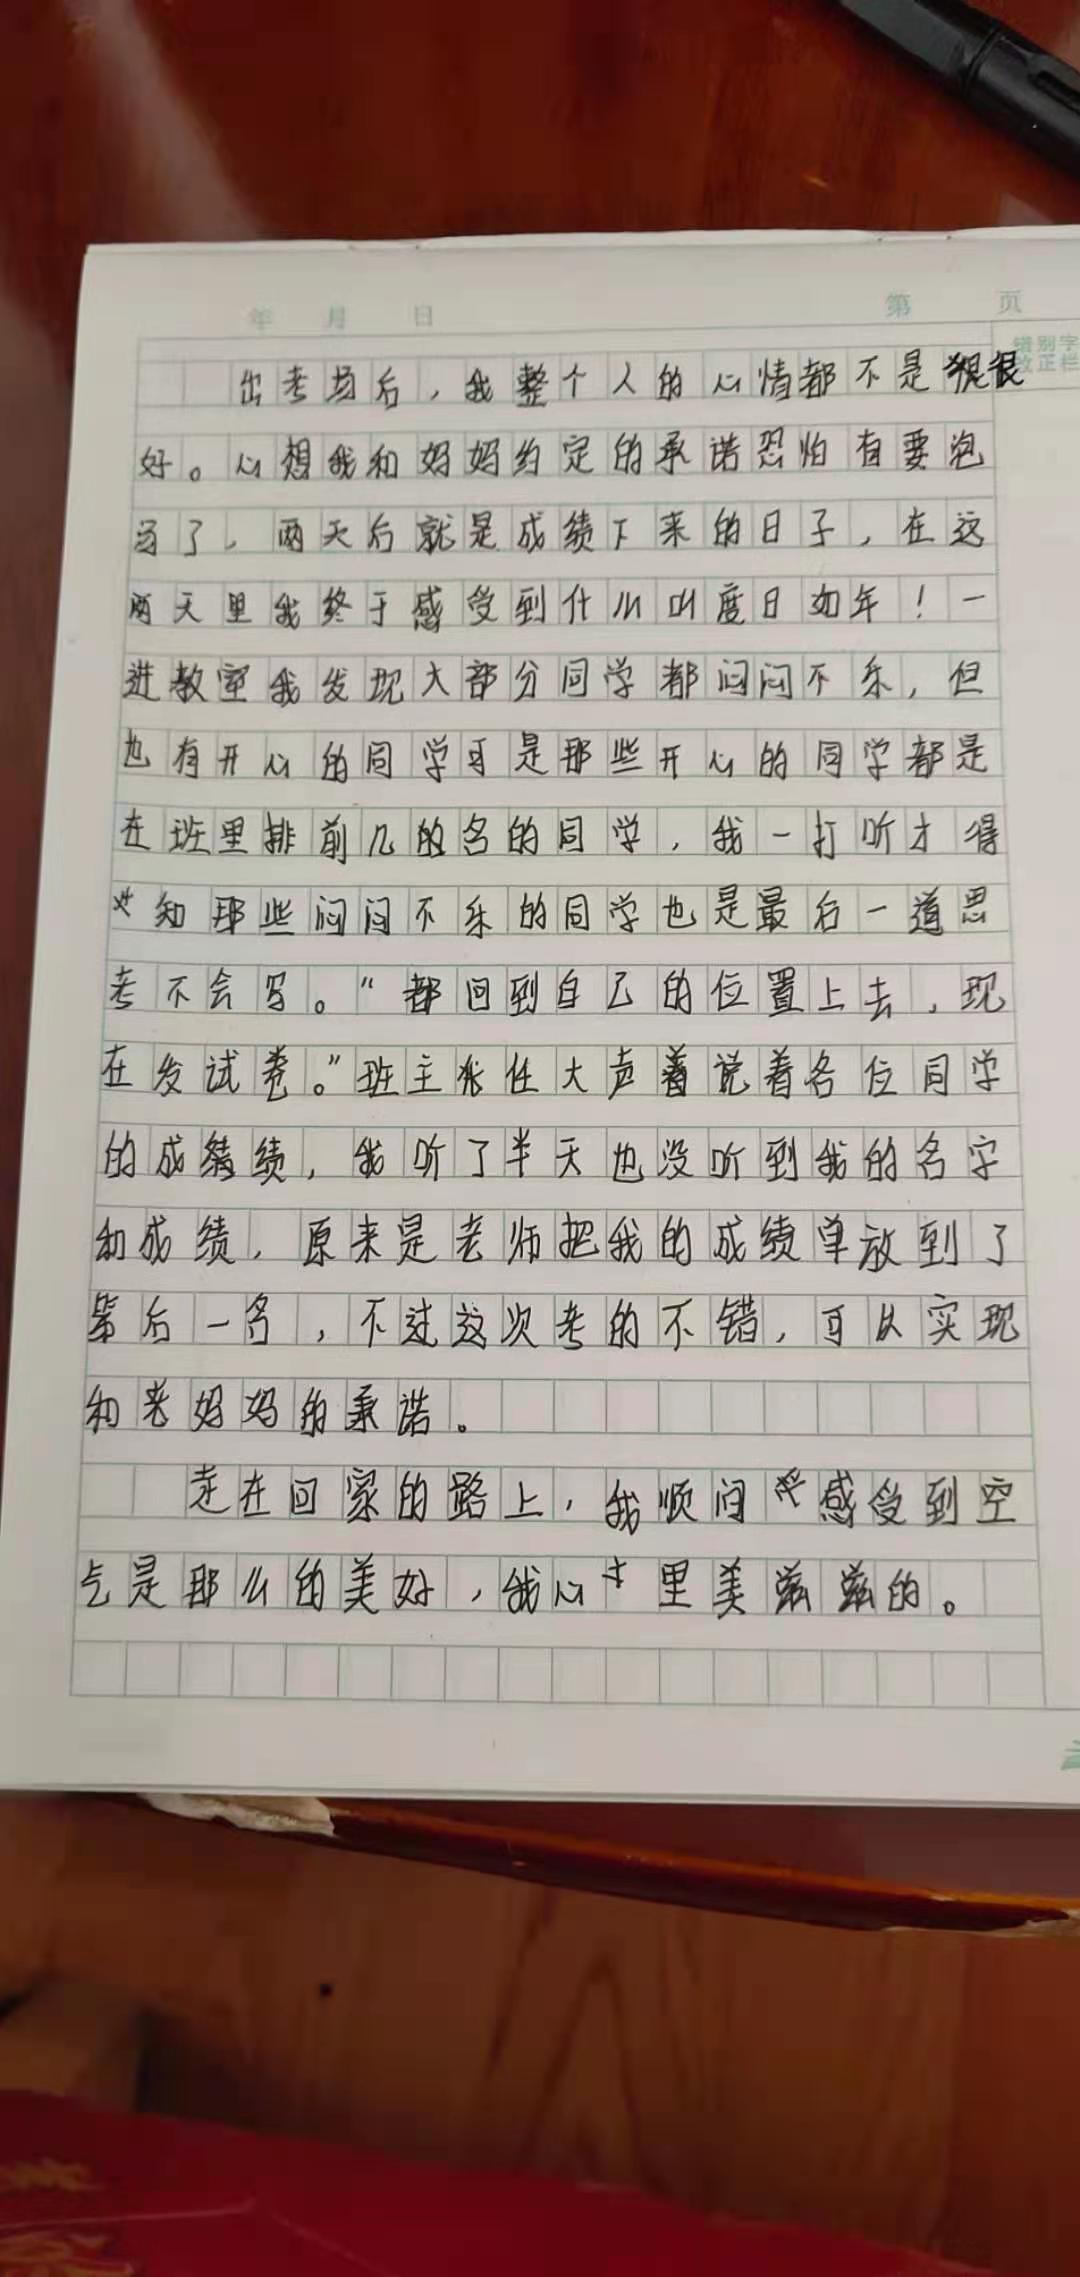 年 月 日 第 页
错别字
改正栏
出考场后，我整个人的心情都不是很
好。心想我和妈妈约定的承诺恐怕有要泡
了，两天后就是成绩下来的日子，在这
两天里我终于感受到什么叫度日如年！一
进教室我发现大部分同学都闷闷不乐，但
也有开心的同学可是那些开心的同学都是
在班里排前几的名的同学，我一打听才得
知那些闷闷不乐的同学也是最后一道思
考不会写。“都回到自己的位置上去，现
在发试卷。”班主任大声着说着各位同学
的成绩，我听了半天也没听到我的名字
和成绩，原来是老师把我的成绩单放到了
后一名，不过这次考的不错，可以实现
和老妈妈的承诺。
走在回家的路上，我顺间感受到空
气是那么的美好，我心里美滋滋的。